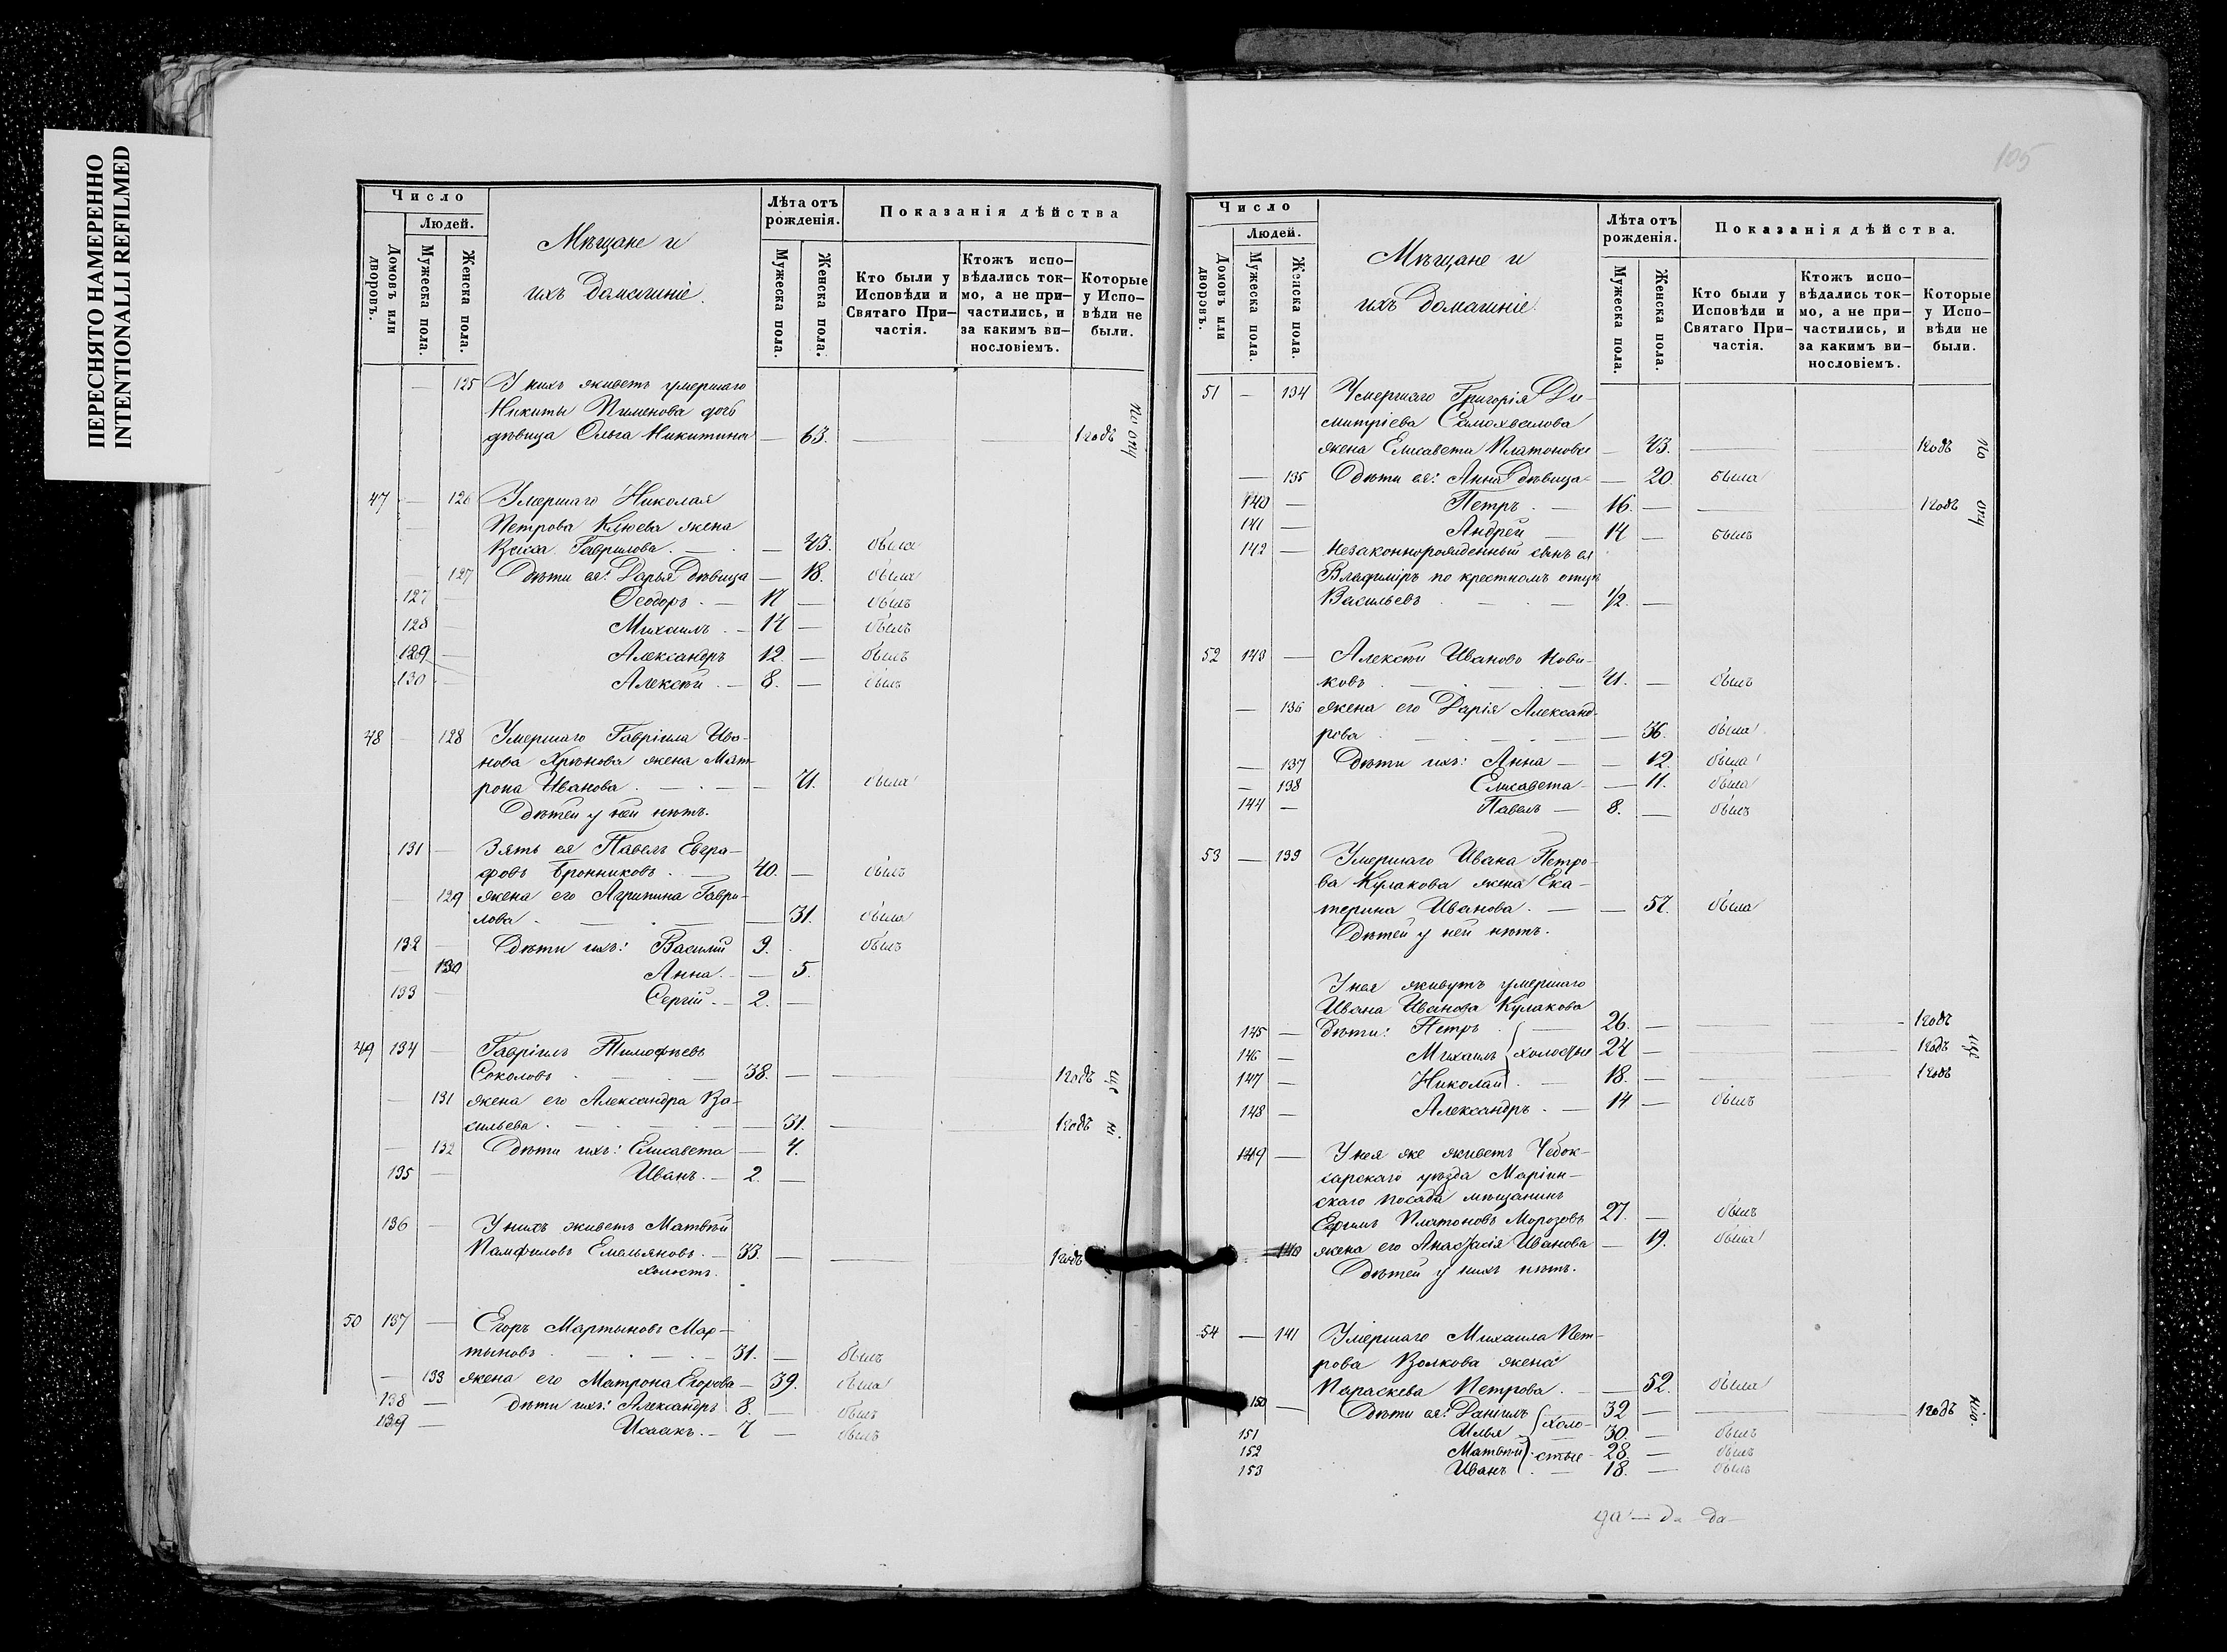 ПЕРЕСНЯТО НАМЕРЕННО
INTENTIONALLI REFILMED
Число
Людей.
Домовъ или дворовъ.
Мужеска пола.
Женска пола.
Мѣщане и
ихъ домашніе.
Лѣта отъ рожденія.
Мужеска пола.
Женска пола.
Показанія дѣйства
Кто были у Исповѣди и Святаго Причастія.
Ктожъ исповѣдались токмо, а не причастились, и за какимъ винословіемъ.
Которые у Исповѣди не были.
— 125 У нихъ живетъ умершаго
Никиты Пименова дочь
дѣвица Ольга Никитина — 63. — — 1 годъ
по
47 — 126 Умершаго Николая
Петрова Клюева жена
Васса Гаврилова. — 43. была
— 127 Дѣти ея: Дарья дѣвица — 18. была
127 — Ѳеодоръ. — 17 — былъ
128 — Михаилъ. — 14 — былъ
129 — Александръ 12. — былъ
130 — Алексѣй. — 8. — былъ
48 — 128 Умершаго Гавріила Ива-
нова Хрѣнова жена Мат-
рона Иванова. — 71. была
Дѣтей у ней нѣтъ.
131 — Зять ея Павелъ Евгра-
фовъ Бронниковъ. — 40. — былъ
— 129 жена его Агрипина Гаври-
лова. — 31. была
132 — Дѣти ихъ: Василій 9. былъ
— 130 Анна. — 5.
133 — Сергій. — 2. —
49 134 — Гавріилъ Тимофѣевъ
Соколовъ. — 38. — — 1 годъ
— 131 жена его Александра Ва-
сильева. — 31. — 1 годъ
— 132 Дѣти ихъ: Елисавета — 4.
135 — Иванъ. — 2. —
136 — У нихъ живетъ Матвѣй
Памфиловъ Емельяновъ. — 33. — — 1 годъ
холостъ.
50 137 — Егоръ Мартыновъ Мар-
тыновъ. — 31. — былъ
— 133 жена его Матрона Егорова — 39. была
138 — Дѣти ихъ: Александръ 8. — былъ
139 — Исаакъ. — 7 — былъ
105
Число
Людей.
Домовъ или дворовъ.
Мужеска пола.
Женска пола.
Мѣщане и
ихъ домашніе.
Лѣта отъ рожденія.
Мужеска пола.
Женска пола.
Показанія дѣйства.
Кто были у Исповѣди и Святаго Причастія.
Ктожъ исповѣдались токмо, а не причастились, и за какимъ винословіемъ.
Которые у Исповѣди не были.
51 — 134 Умершаго Григорія Ди-
митріева Самохвалова
жена Елисавета Платонова — 43. — — 1 годъ
по
— 135 Дѣти ея: Анна дѣвица — 20. была
140 — Петръ. — 16. — — 1 годъ
141 — Андрей — 14 — былъ
142 — Незаконнорожденный сынъ ея
Владиміръ по крестномъ отцѣ
Васильевъ. — 1/2. —
52 143 — Алексѣй Ивановъ Нови-
ковъ. — 41. — былъ
— 136 жена его Дарія Александ-
рова — 36. была
— 137 Дѣти ихъ: Анна — 12. была
— 138 Елисавета — 11. была
144 — Павелъ — 8. — былъ
53 — 139 Умершаго Ивана Петро-
ва Кулакова жена Ека-
терина Иванова. — 57. была
Дѣтей у ней нѣтъ.
У нея живутъ умершаго
Ивана Иванова Кулакова
145 — дѣти: Петръ — 26. — — 1 годъ
146 — Михаилъ холостые 24 — 1 годъ
147 — Николай — 18. — — 1 годъ
148 — Александръ. — 14 — былъ
149 — У нея же живетъ Чебок-
сарскаго уѣзда Маріин-
скаго посада мѣщанинъ
Ефимъ Платоновъ Морозовъ 27. — былъ
— 140 жена его Анастасія Иванова — 19. была
Дѣтей у нихъ нѣтъ.
54 — 141 Умершаго Михаила Пет-
рова Волкова жена
Параскева Петрова. — 52. была
150 — Дѣти ея: Даніилъ холо- 32 — — 1 годъ
151 Илья 30. — былъ
152 Матвѣй стые 28. — былъ
153 Иванъ. — 18. — былъ